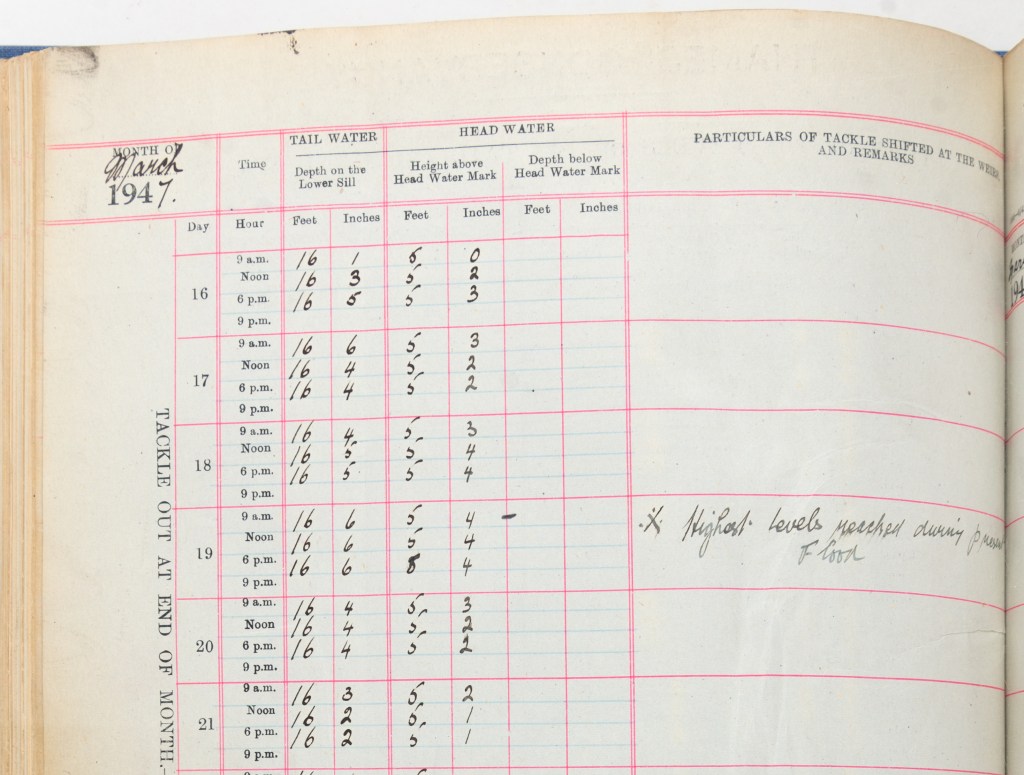 MONTH OF
March
1947.
TAIL WATER
HEAD WATER
PARTICULARS OF TACKLE SHIFTED AT THE WEIRS,
AND REMARKS
Time
Depth on the
Lower Sill
Height above
Head Water Mark
Depth below
Head Water Mark
Day Hour Feet Inches Feet Inches Feet Inches
TACKLE OUT AT END OF MONTH.
16
9 a.m. 16 1 5 0
Noon 16 3 5 2
6 p.m. 16 5 5 3
9 p.m.
17
9 a.m. 16 6 5 3
Noon 16 4 5 2
6 p.m. 16 4 5 2
9 p.m.
18
9 a.m. 16 4 5 3
Noon 16 5 5 4
6 p.m. 16 5 5 4
9 p.m.
19
9 a.m. 16 6 5 4 - Highest levels reached during
Flood
Noon 16 6 5 4
6 p.m. 16 6 5 4
9 p.m.
20
9 a.m. 16 4 5 3
Noon 16 4 5 2
6 p.m. 16 4 5 2
9 p.m.
21
9 a.m. 16 3 5 2
Noon 16 2 5 1
6 p.m. 16 2 5 1
9 p.m.